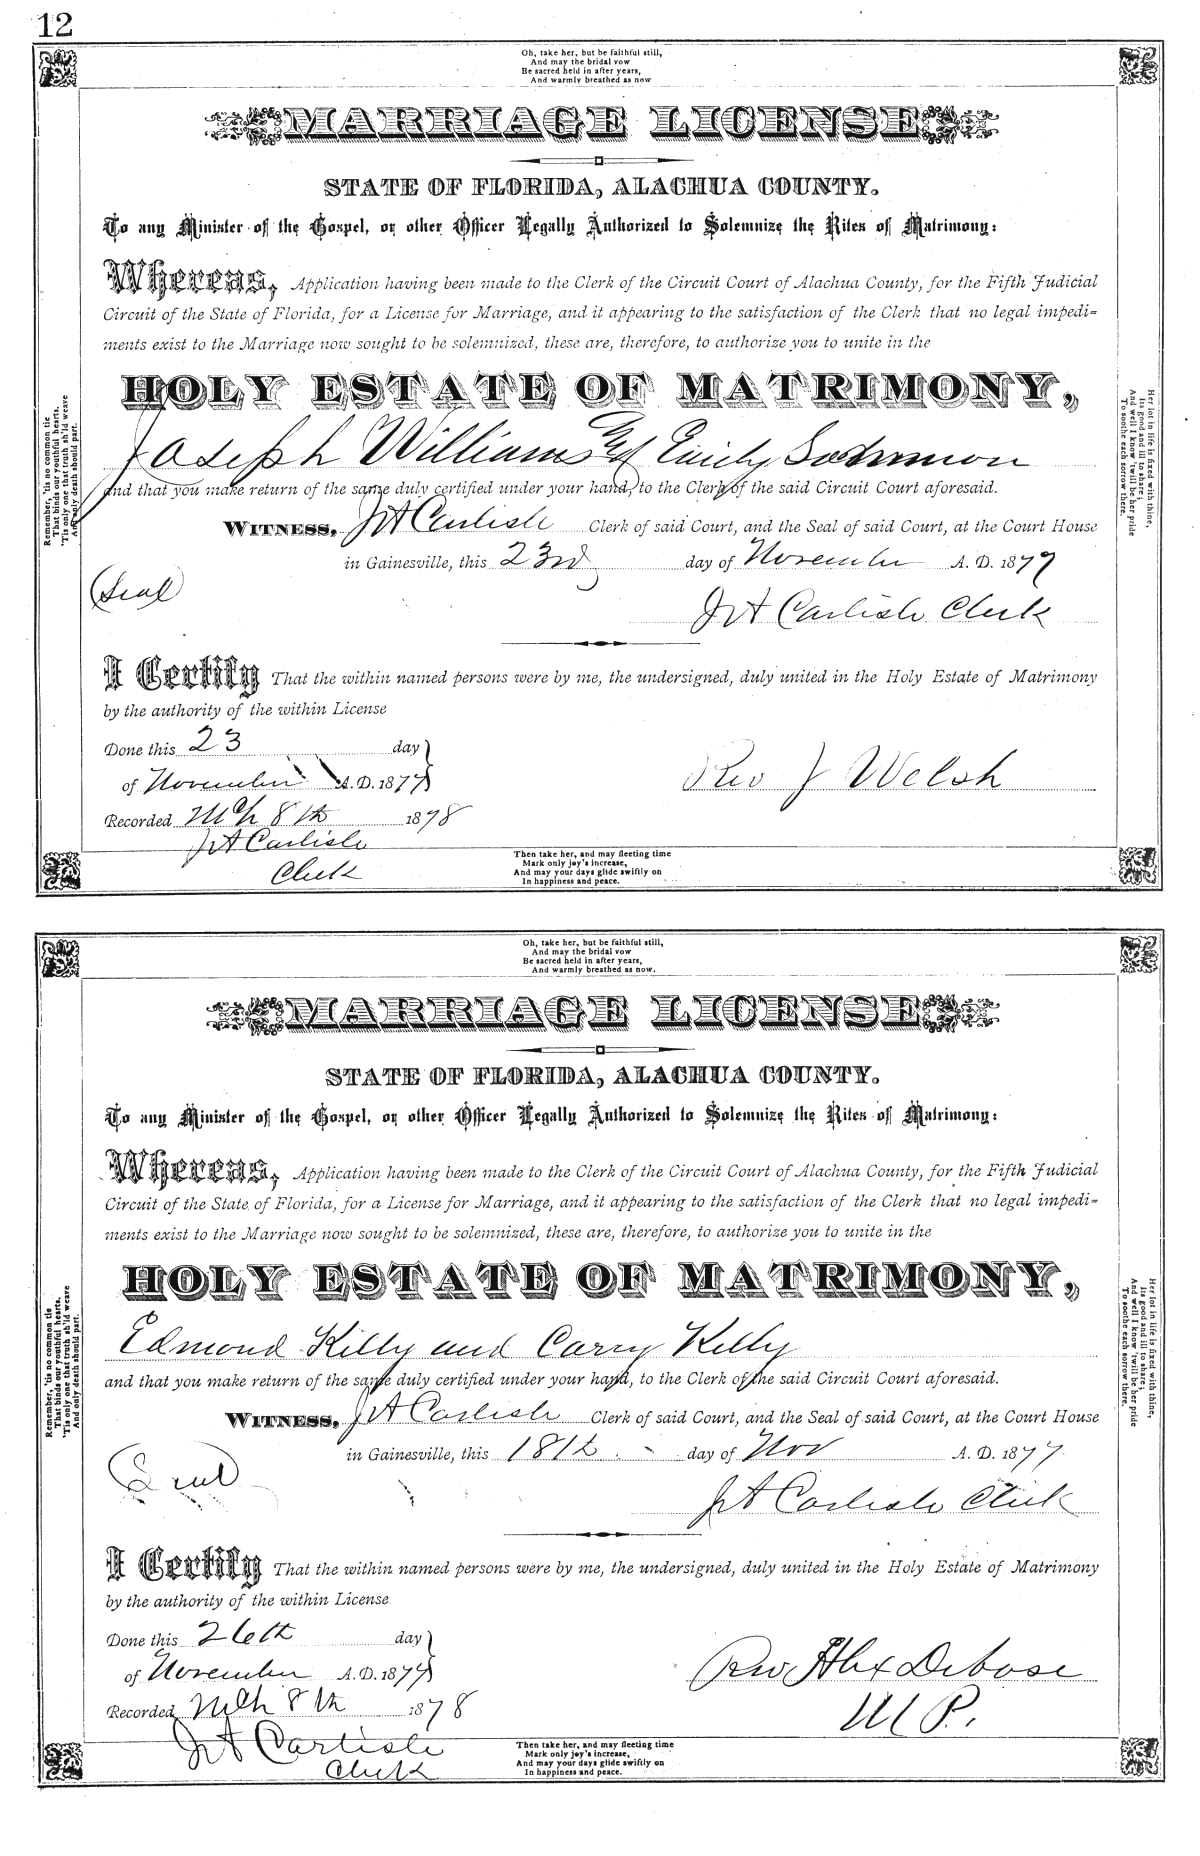 12
Oh, take her, but be faithful still,
And may the bridal vow
Be sacred held in after years,
And warmly breathed as now
MARRIAGE LICENSE
STATE OF FLORIDA, ALACHUA COUNTY.
To any Minister of the Gospel, or other Officer Legally Authorized to Solemnize the Rites of Matrimony:
Whereas, Application having been made to the Clerk of the Circuit Court of Alachua County, for the Fifth Judicial
Circuit of the State of Florida, for a License for Marriage, and it appearing to the satisfaction of the Clerk that no legal impedi=
ments exist to the Marriage now sought to be solemnized, these are, therefore, to authorize you to unite in the
HOLY ESTATE OF MATRIMONY,
Joseph Williams & Emily
and that you make return of the same duly certified under your hand, to the Clerk of the said Circuit Court aforesaid.
WITNESS, J A Carlisle Clerk of said Court, and the Seal of said Court, at the Court House
in Gainesville, this 23rd day of November A. D. 1877
(Seal)
J A Carlisle Clerk
I Certify That the within named persons were by me, the undersigned, duly united in the Holy Estate of Matrimony
by the authority of the within License
Done this 23 day
of November A. D. 1877
Rev J Welsh
Recorded Mch 8th 1878
J A Carlisle
Clerk
Remember, 'tis no common tie
That binds our youthful hearts,
'Tis only one that truth sh'ld weave
And only death should part.
Her lot in life is fixed with thine,
Its good and ill to share;
And well I know 'twill be her pride
To soothe each sorrow there.
Then take her, and may fleeting time
Mark only joy's increase,
And may your days glide swiftly on
In happiness and peace.
Oh, take her, but be faithful still,
And may the bridal vow
Be sacred held in after years,
And warmly breathed as now.
MARRIAGE LICENSE
STATE OF FLORIDA, ALACHUA COUNTY.
To any Minister of the Gospel, or other Officer Legally Authorized to Solemnize the Rites of Matrimony:
Whereas, Application having been made to the Clerk of the Circuit Court of Alachua County, for the Fifth Judicial
Circuit of the State of Florida, for a License for Marriage, and it appearing to the satisfaction of the Clerk that no legal impedi=
ments exist to the Marriage now sought to be solemnized, these are, therefore, to authorize you to unite in the
HOLY ESTATE OF MATRIMONY,
Edmond Kelly and Carry Kelly
and that you make return of the same duly certified under your hand, to the Clerk of the said Circuit Court aforesaid.
WITNESS, J A Carlisle Clerk of said Court, and the Seal of said Court, at the Court House
in Gainesville, this 18th day of Nov A. D. 1877
(Seal)
J A Carlisle Clerk
I Certify That the within named persons were by me, the undersigned, duly united in the Holy Estate of Matrimony
by the authority of the within License
Done this 26th day
of November A. D. 1877
Rev. Alex Debose
M P.
Recorded Mch 8th 1878
J A Carlisle
Clerk
Remember, 'tis no common tie
That binds our youthful hearts,
'Tis only one that truth sh'ld weave
And only death should part.
Her lot in life is fixed with thine,
Its good and ill to share;
And well I know 'twill be her pride
To soothe each sorrow there.
Then take her, and may fleeting time
Mark only joy's increase,
And may your days glide swiftly on
In happiness and peace.